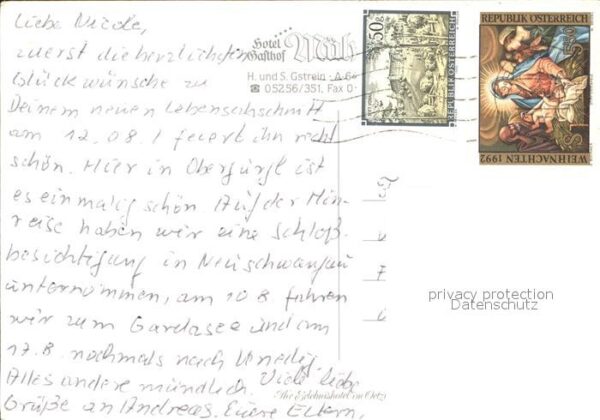 Liebe Nicole,
zuerst die herzlichsten
Glückwünsche zu
Deinem neuen Lebensabschnitt
am 12.08.! feiert ihn recht
schön. Hier in Obergurgl ist
es einmalig schön. Auf der Hin-
reise haben wir eine Schloß-
besichtigung in Neuschwanstein
unternommen, am 10.8. fahren
wir zum Gardasee und am
17.8. nochmals nach Venedig.
Alles andere mündlich. Viele liebe
Grüße an Andreas. Eure Eltern.
Hotel
Gasthof
H. und S. Gstrein - A-6
☎ 05256/351, Fax 0
50g
REPUBLIK ÖSTERREICH
REPUBLIK ÖSTERREICH
WEIHNACHTEN 1992
Ihr Erlebnishotel im Ötz
privacy protection
Datenschutz